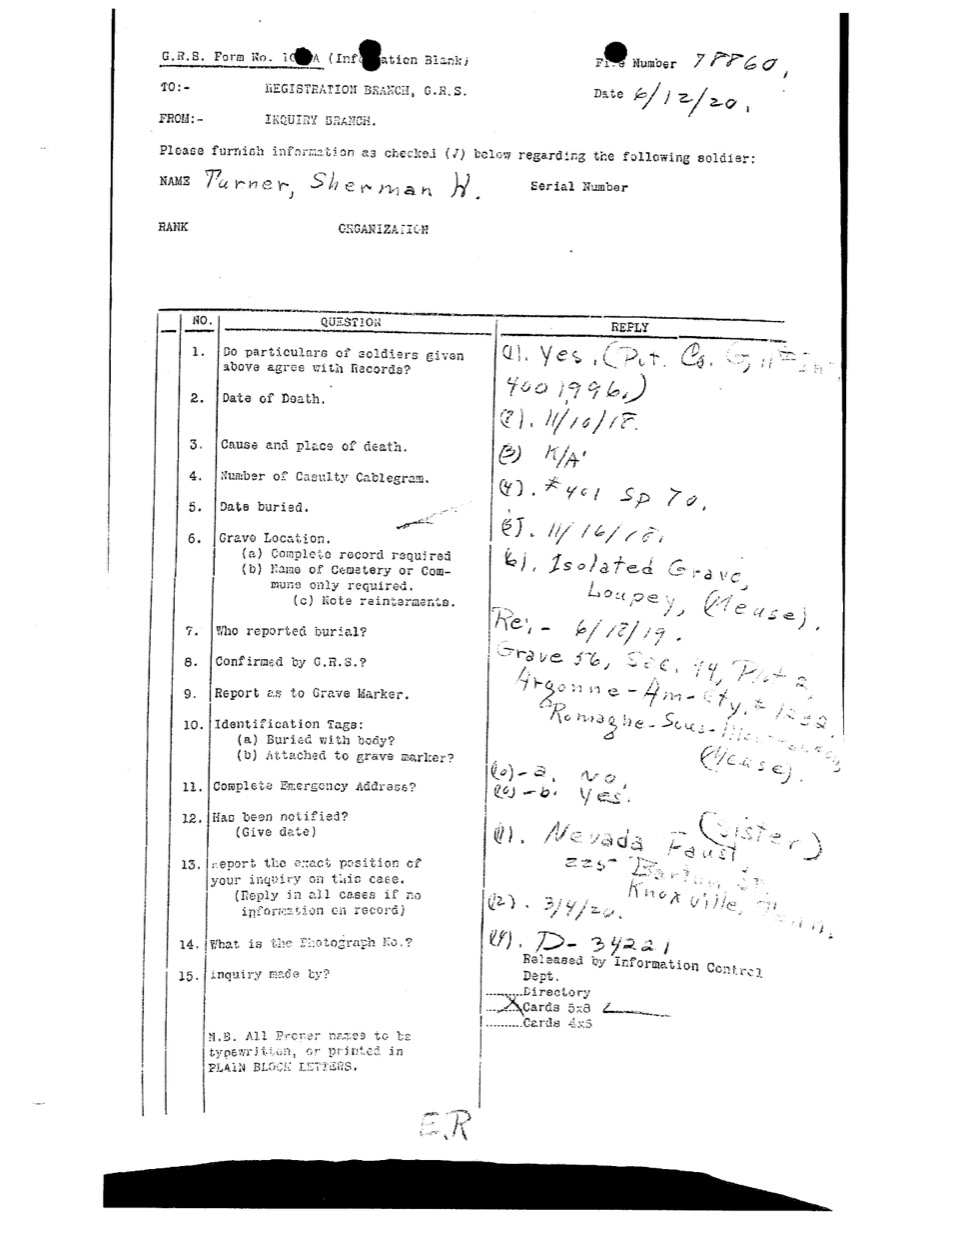 G.R.S. Form No. (Information Blank)
File Number 78860.
TO:- REGISTRATION BRANCH, G.R.S.
Date 6/12/20.
FROM:- INQUIRY BRANCH.
Please furnish information as checked (√) below regarding the following soldier:
NAME Turner, Sherman W. Serial Number
RANK ORGANIZATION
NO. QUESTION REPLY
1. Do particulars of soldiers given
above agree with Records?
(1). Yes. (Pvt. Co. G, 11 # Inf.
400 1996.)
2. Date of Death.
(2). 11/10/18.
3. Cause and place of death.
(3) K/A.
4. Number of Casulty Cablegram.
(4). #401 Sp 70.
5. Date buried.
(5). 11/16/18.
6. Grave Location.
(a) Complete record required
(b) Name of Cemetery or Com-
mune only required.
(c) Note reinterments.
6). Isolated Grave,
Loupey, (Meuse).
7. Who reported burial?
Re:- 6/18/19.
8. Confirmed by G.R.S.?
Grave 56, Sec. 44, Plot 2,
9. Report as to Grave Marker.
Argonne-Am-Cty. #1232,
Romagne-Sous-Montfaucon,
(Meuse).
10. Identification Tags:
(a) Buried with body?
(b) Attached to grave marker?
(10)-a. No.
(10)-b. Yes.
11. Complete Emergency Address?
12. Has been notified?
(Give date)
(11). Nevada Faust (Sister)
225 Barton St.
Knoxville, Tenn.
13. Report the exact position of
your inquiry on this case.
(Reply in all cases if no
information on record)
(12). 3/4/20.
14. What is the Photograph No.?
(14). D-34221
15. Inquiry made by?
Released by Information Control
Dept.
........Directory
...X...Cards 5x8
.........Cards 4x6
N.B. All Proper names to be
typewritten, or printed in
PLAIN BLOCK LETTERS.
E.R